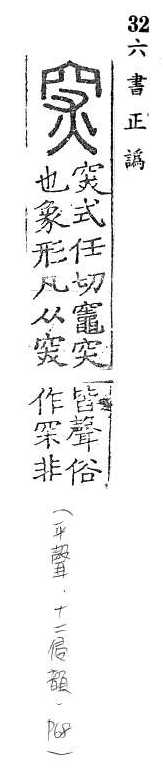 32 六書正譌
𥥍式任切竈突
也象形凡从𥥍
皆聲俗
作罙非
(平聲．十二侵韻．P68)